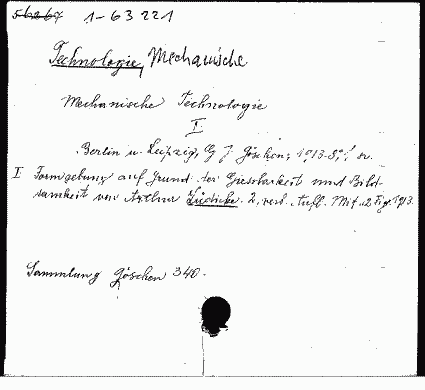 56267 1-63 221
Technologie, Mechanische
Mechanische Technologie
I
Berlin u. Leipzig, G. J. Göschen, 1913-8°,
I Formgebung auf Grund der Giessbarkeit und Bild-
samkeit von Arthur Lüdicke. 2. verb. Aufl. Mit Fig. 1913.
Sammlung Göschen 340.